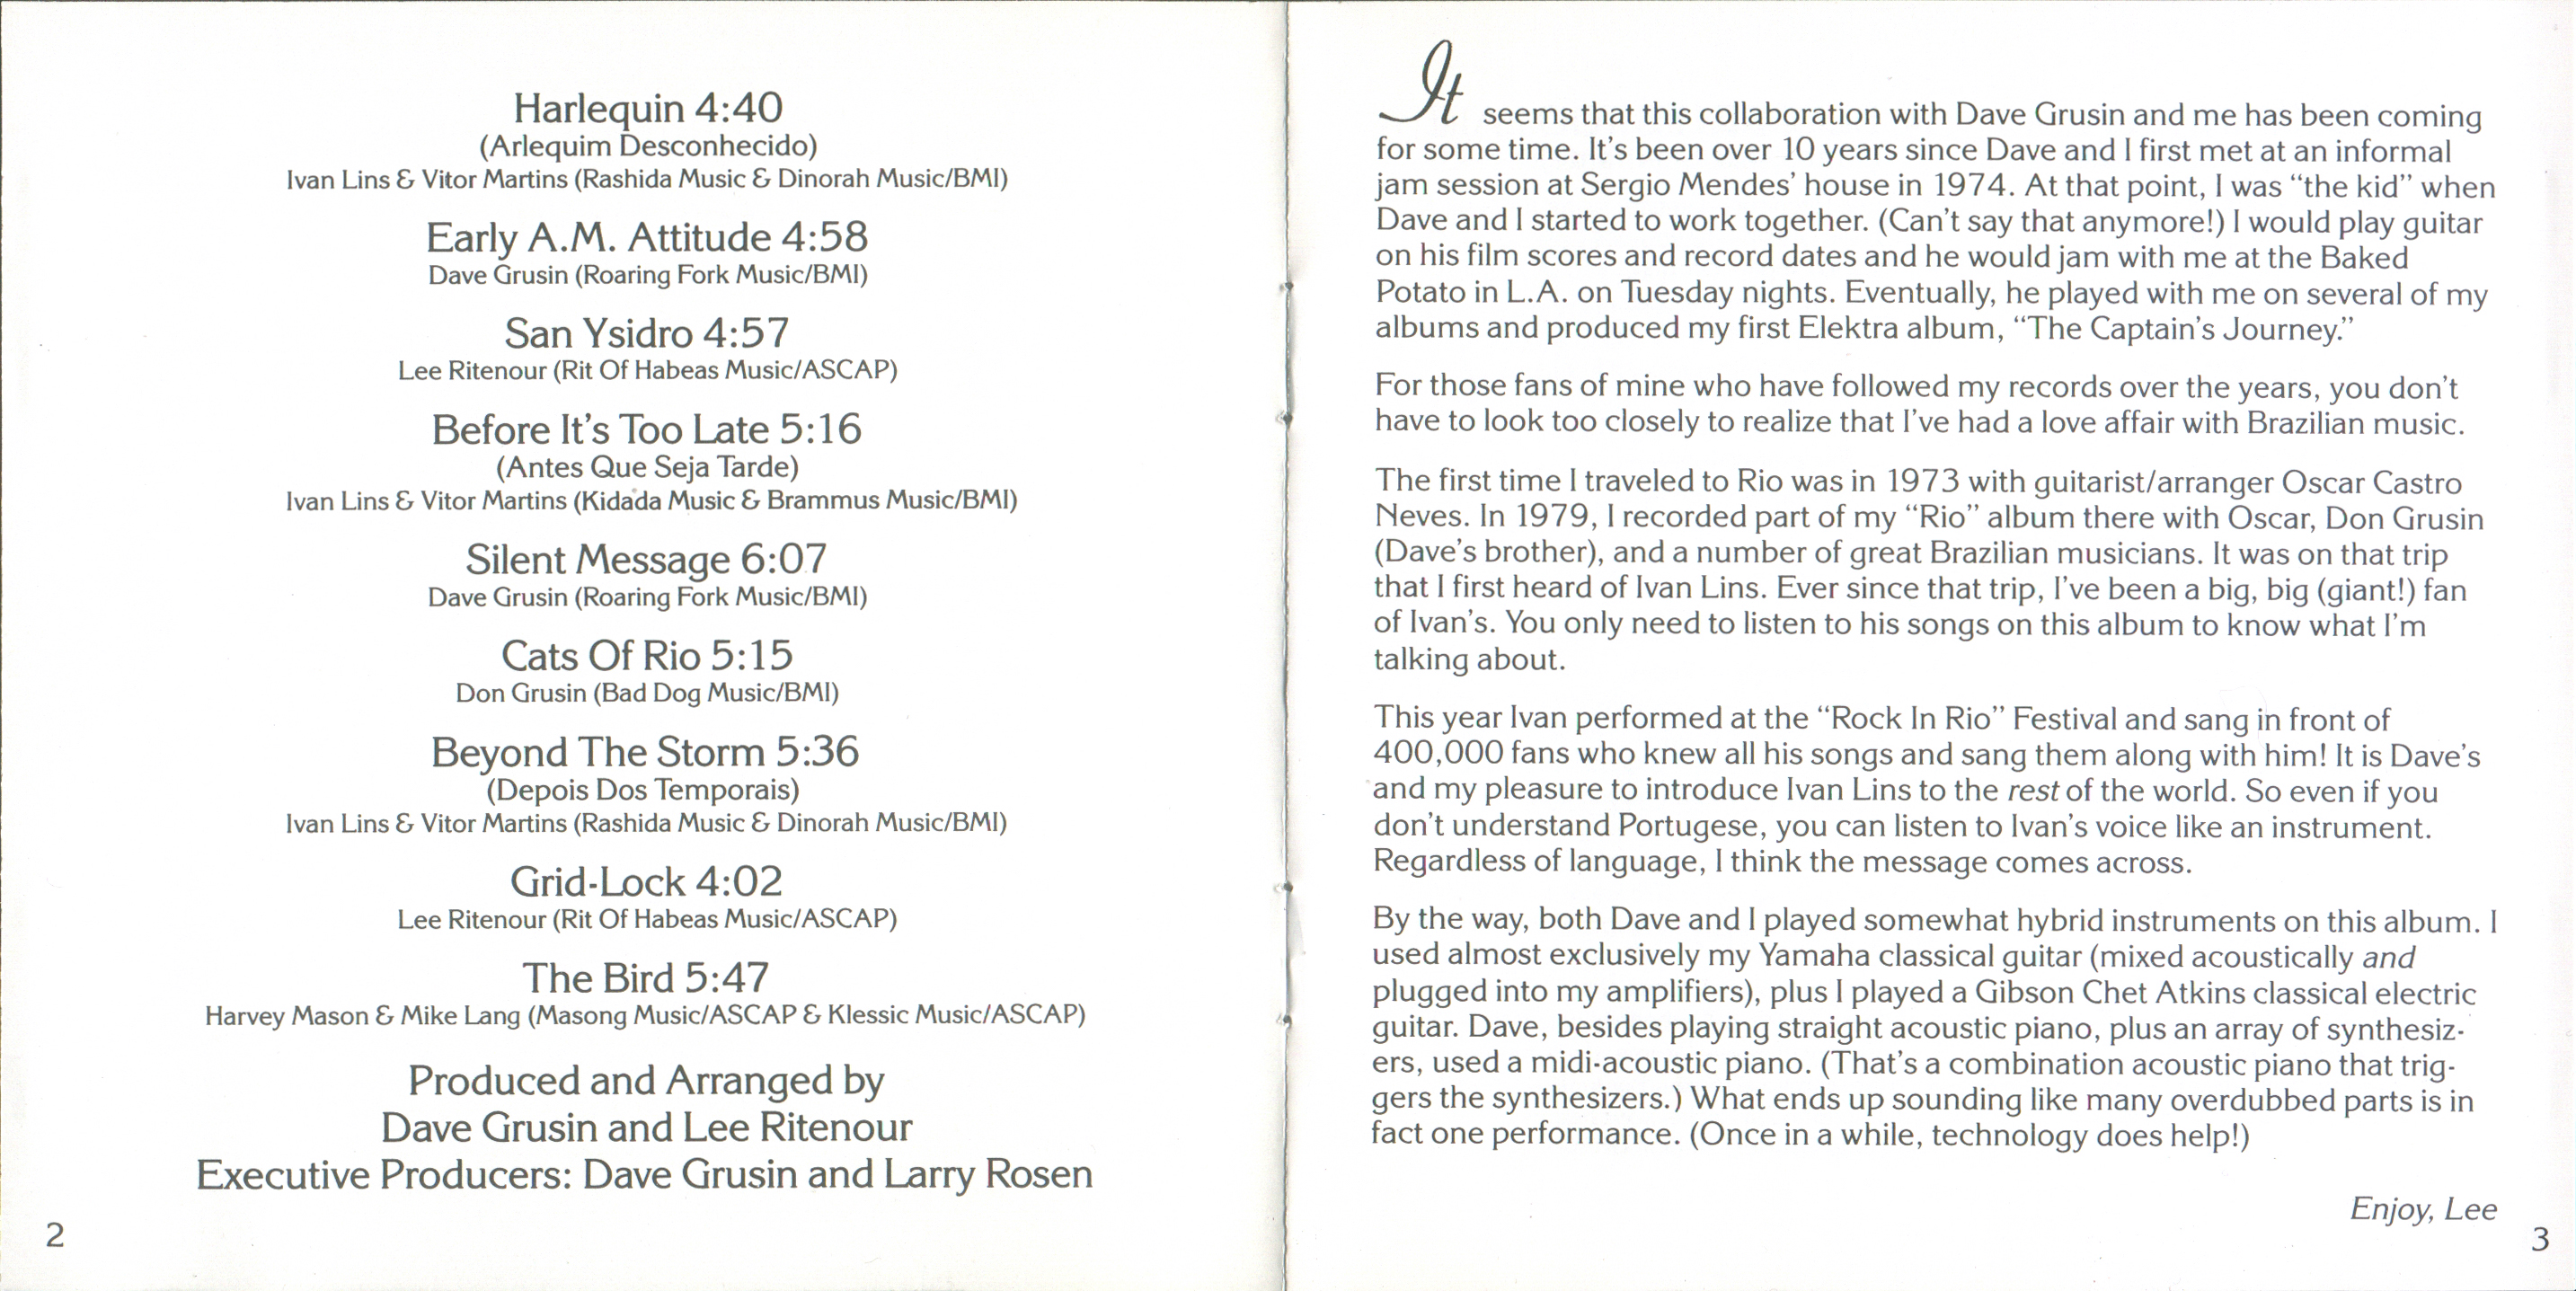 Harlequin 4:40
(Arlequim Desconhecido)
Ivan Lins & Vitor Martins (Rashida Music & Dinorah Music/BMI)
Early A.M. Attitude 4:58
Dave Grusin (Roaring Fork Music/BMI)
San Ysidro 4:57
Lee Ritenour (Rit Of Habeas Music/ASCAP)
Before It's Too Late 5:16
(Antes Que Seja Tarde)
Ivan Lins & Vitor Martins (Kidada Music & Brammus Music/BMI)
Silent Message 6:07
Dave Grusin (Roaring Fork Music/BMI)
Cats Of Rio 5:15
Don Grusin (Bad Dog Music/BMI)
Beyond The Storm 5:36
(Depois Dos Temporais)
Ivan Lins & Vitor Martins (Rashida Music & Dinorah Music/BMI)
Grid-Lock 4:02
Lee Ritenour (Rit Of Habeas Music/ASCAP)
The Bird 5:47
Harvey Mason & Mike Lang (Masong Music/ASCAP & Klessic Music/ASCAP)
Produced and Arranged by
Dave Grusin and Lee Ritenour
Executive Producers: Dave Grusin and Larry Rosen
2
It seems that this collaboration with Dave Grusin and me has been coming
for some time. It's been over 10 years since Dave and I first met at an informal
jam session at Sergio Mendes' house in 1974. At that point, I was "the kid" when
Dave and I started to work together. (Can't say that anymore!) I would play guitar
on his film scores and record dates and he would jam with me at the Baked
Potato in L.A. on Tuesday nights. Eventually, he played with me on several of my
albums and produced my first Elektra album, "The Captain's Journey."
For those fans of mine who have followed my records over the years, you don't
have to look too closely to realize that I've had a love affair with Brazilian music.
The first time I traveled to Rio was in 1973 with guitarist/arranger Oscar Castro
Neves. In 1979, I recorded part of my "Rio" album there with Oscar, Don Grusin
(Dave's brother), and a number of great Brazilian musicians. It was on that trip
that I first heard of Ivan Lins. Ever since that trip, I've been a big, big (giant!) fan
of Ivan's. You only need to listen to his songs on this album to know what I'm
talking about.
This year Ivan performed at the "Rock In Rio" Festival and sang in front of
400,000 fans who knew all his songs and sang them along with him! It is Dave's
and my pleasure to introduce Ivan Lins to the rest of the world. So even if you
don't understand Portugese, you can listen to Ivan's voice like an instrument.
Regardless of language, I think the message comes across.
By the way, both Dave and I played somewhat hybrid instruments on this album. I
used almost exclusively my Yamaha classical guitar (mixed acoustically and
plugged into my amplifiers), plus I played a Gibson Chet Atkins classical electric
guitar. Dave, besides playing straight acoustic piano, plus an array of synthesiz-
ers, used a midi-acoustic piano. (That's a combination acoustic piano that trig-
gers the synthesizers.) What ends up sounding like many overdubbed parts is in
fact one performance. (Once in a while, technology does help!)
Enjoy, Lee
3